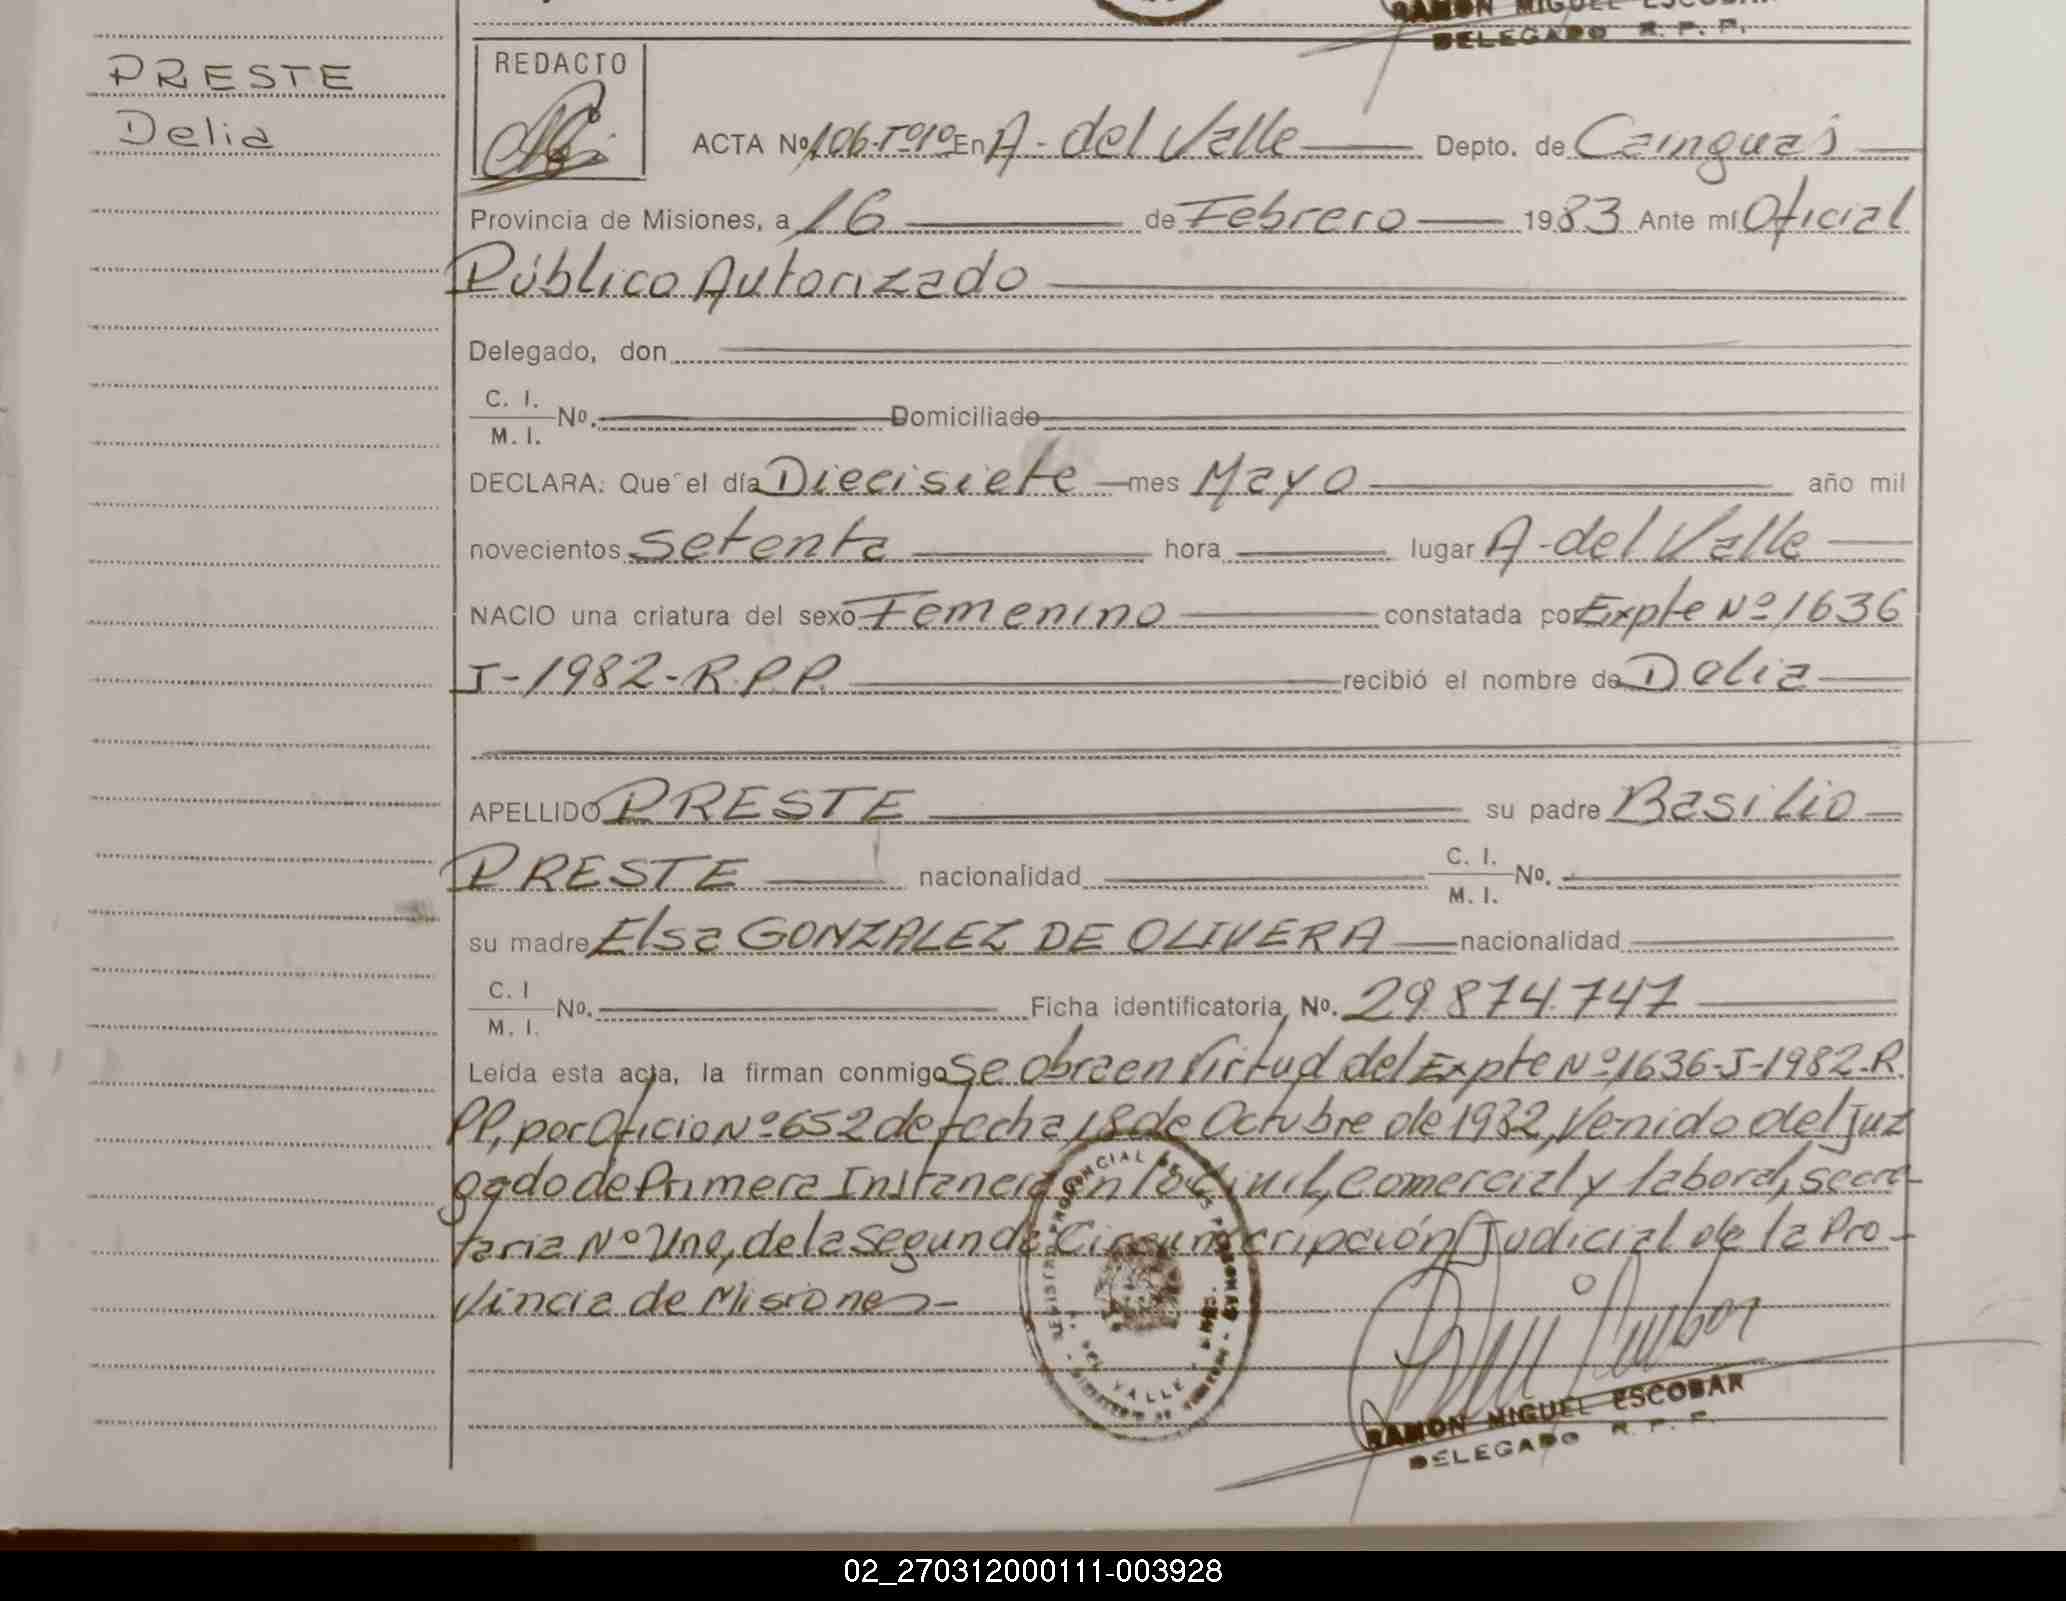 RAMON MIGUEL ESCOBAR
DELEGADO R. P. P.
PRESTE
Delia
REDACTO
ACTA Nº 106-Tº1º En A- del Valle Depto. de Cainguás
Provincia de Misiones, a 16 de Febrero 1983 Ante mí Oficial
Público Autorizado
Delegado, don
C. I.
M. I. Nº. Domiciliado
DECLARA: Que el día Diecisiete mes Mayo año mil
novecientos setenta hora lugar A-del Valle
NACIO una criatura del sexo Femenino constatada por Expte Nº 1636
J-1982-R.P.P. recibió el nombre de Delia
APELLIDO PRESTE su padre Basilio
PRESTE nacionalidad C. I. M. I. Nº.
su madre Elsa GONZALEZ DE OLIVERA nacionalidad
C. I M. I. Nº. Ficha identificatoria Nº. 29.874.747
Leída esta acta, la firman conmigo Se obra en Virtud del Expte Nº 1636-J-1982-R.
PP, por Oficio Nº 652 de fecha 18 de Octubre de 1982, Venido del Juz
gado de Primera Instancia en lo Civil, Comercial y laboral, secre-
taria Nº Uno, de la Segunda Circunscripción Judicial de la Pro-
vincia de Misiones-
REGISTRO PROVINCIAL DE LAS PERSONAS
A. DEL VALLE
RAMON MIGUEL ESCOBAR
DELEGADO R. P. P.
02_270312000111-003928